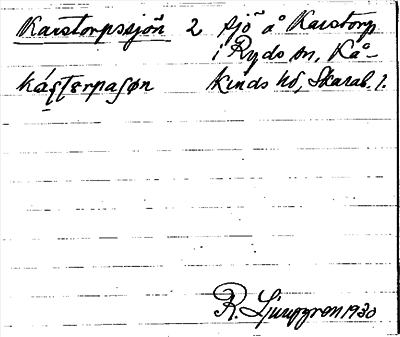 Karstorpssjön 2 sjö å Karstorp
i Ryds sn, Kå-
kinds hd, Skarab. l.
R. Ljunggren 1930